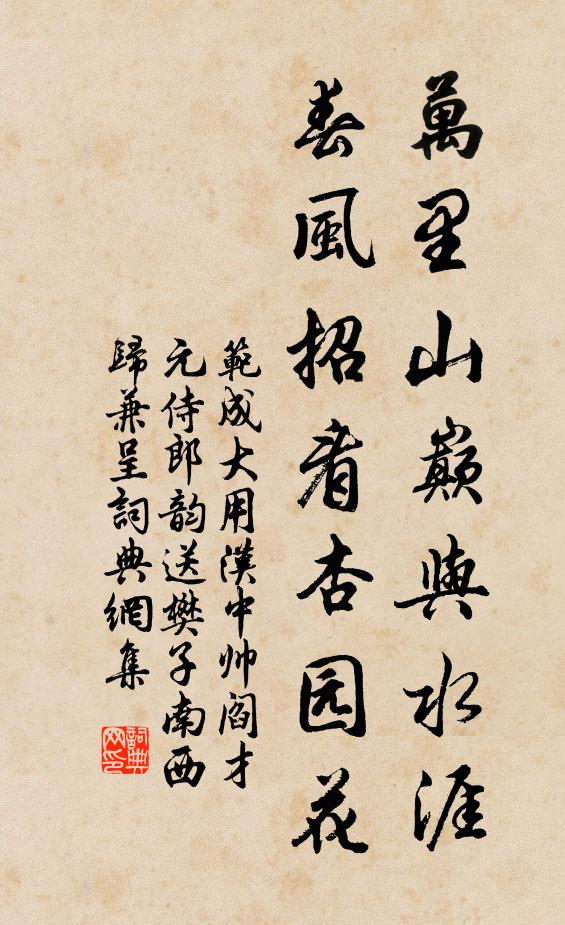 萬里山巔與水涯
春風招看杏园花
範成大用漢中帅阎才
元侍郎韵送樊子南西
歸兼呈詞典網集
詞典网印